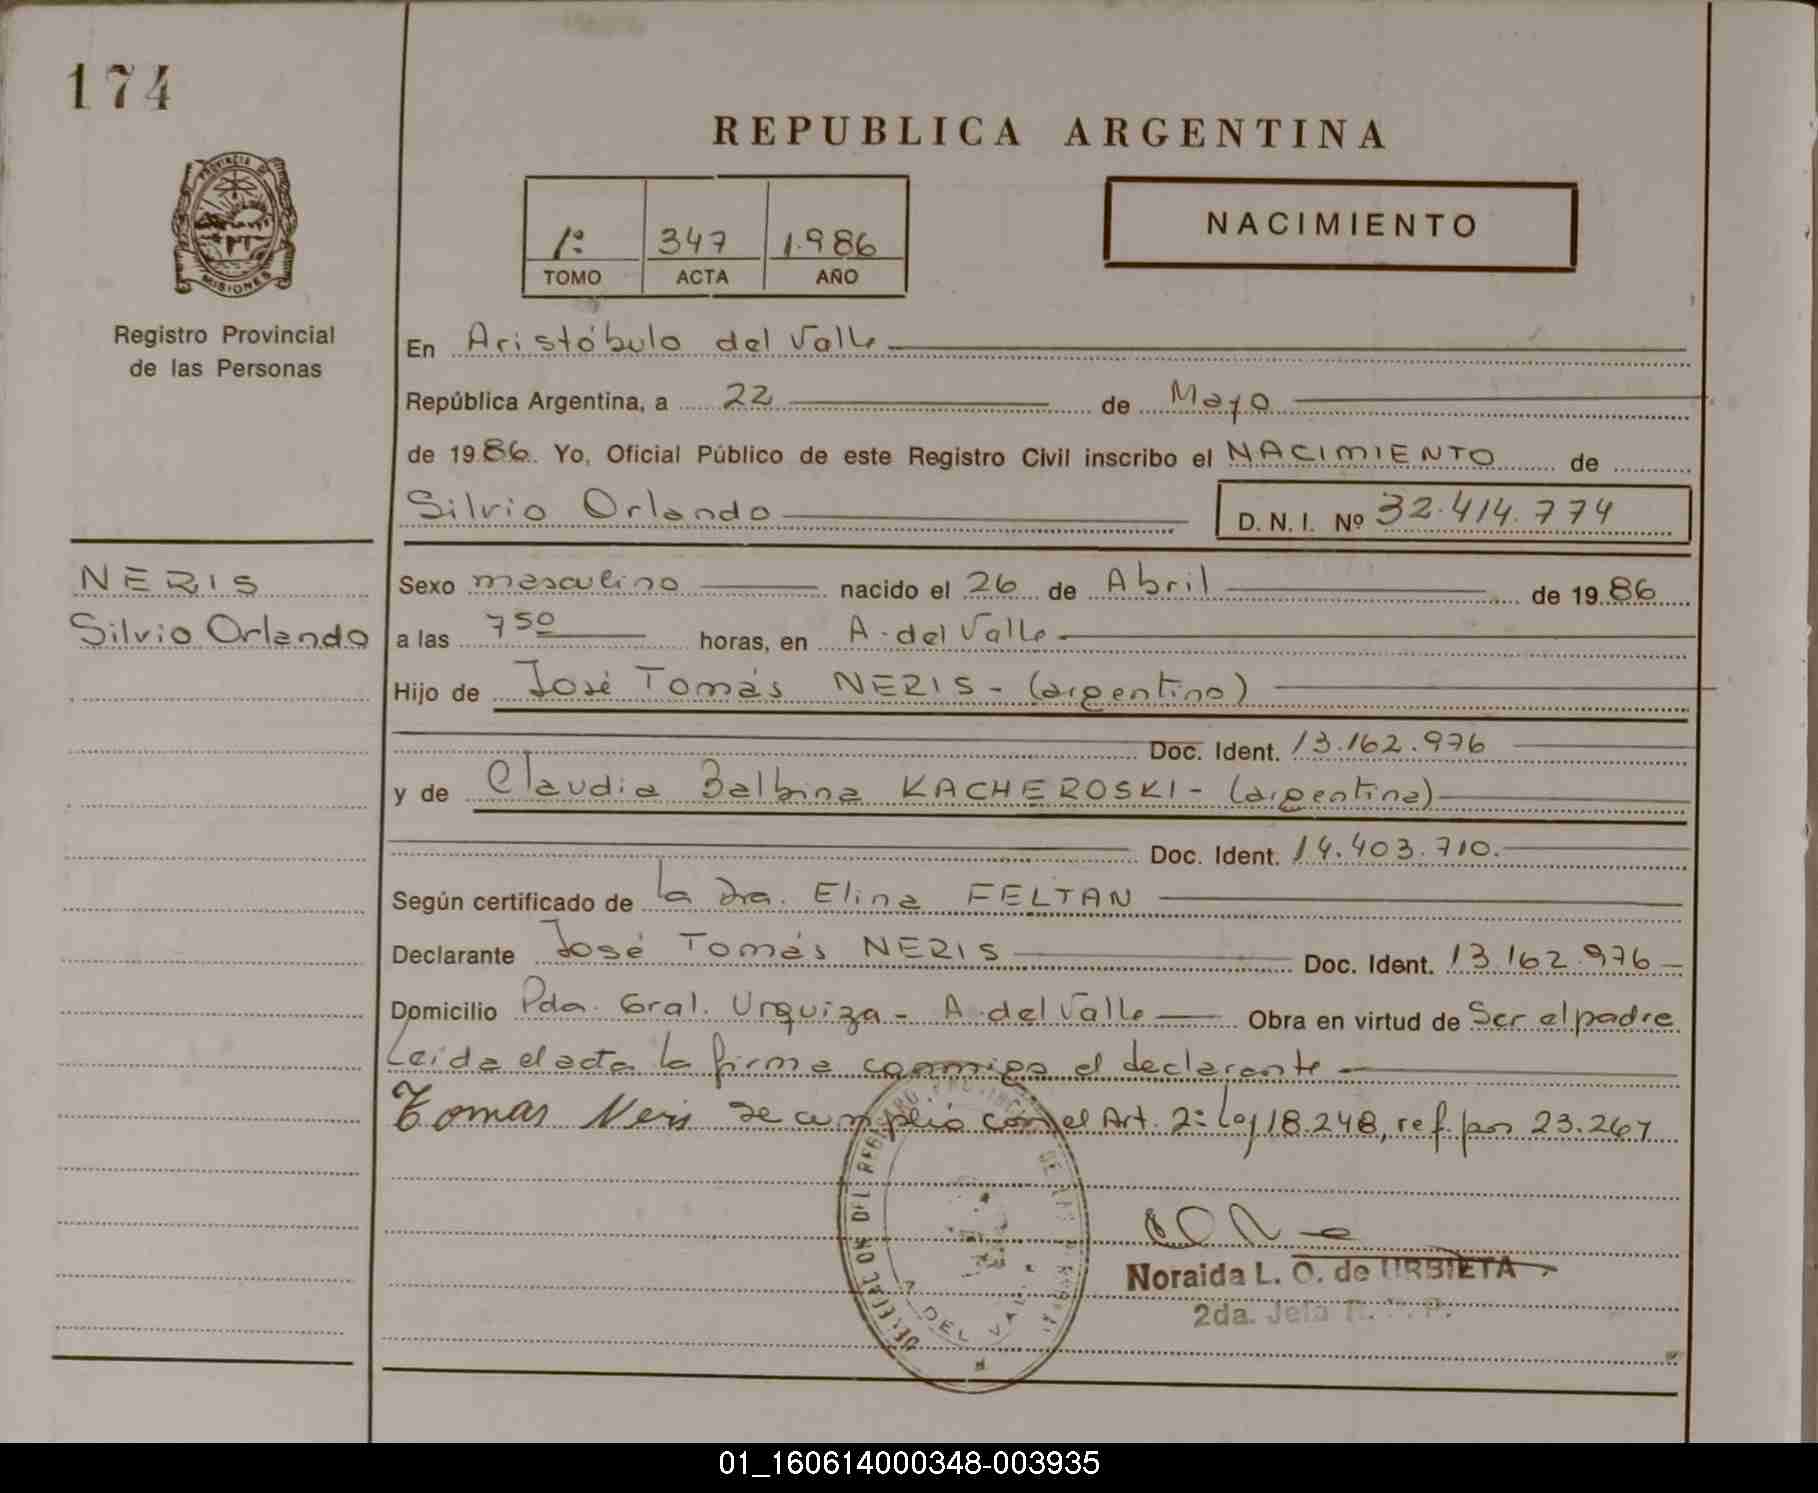 174
REPUBLICA ARGENTINA
PROVINCIA DE
MISIONES
1º 347 1.986
TOMO ACTA AÑO
NACIMIENTO
Registro Provincial
de las Personas
En Aristóbulo del Valle
República Argentina, a 22 de Mayo
de 1986. Yo, Oficial Público de este Registro Civil inscribo el NACIMIENTO de
Silvio Orlando D. N. I. Nº 32.414.774
NERIS
Silvio Orlando
Sexo masculino nacido el 26 de Abril de 1986
a las 7 50 horas, en A. del Valle
Hijo de José Tomás NERIS - (argentino)
Doc. Ident. 13.162.976
y de Claudia Balbina KACHEROSKI - (argentina)
Doc. Ident. 14.403.710.
Según certificado de la Dra. Elina FELTAN
Declarante José Tomás NERIS Doc. Ident. 13.162.976
Domicilio Pda. Gral. Urquiza - A. del Valle Obra en virtud de Ser el padre
Leida el acta la firma conmigo el declarante
Tomas Neris se cumplió con el Art. 2º Ley 18.248, ref. por 23.267
DEL VALLE
Noraida L. O. de URBIETA
2da. Jefa R. P. P.
01_160614000348-003935